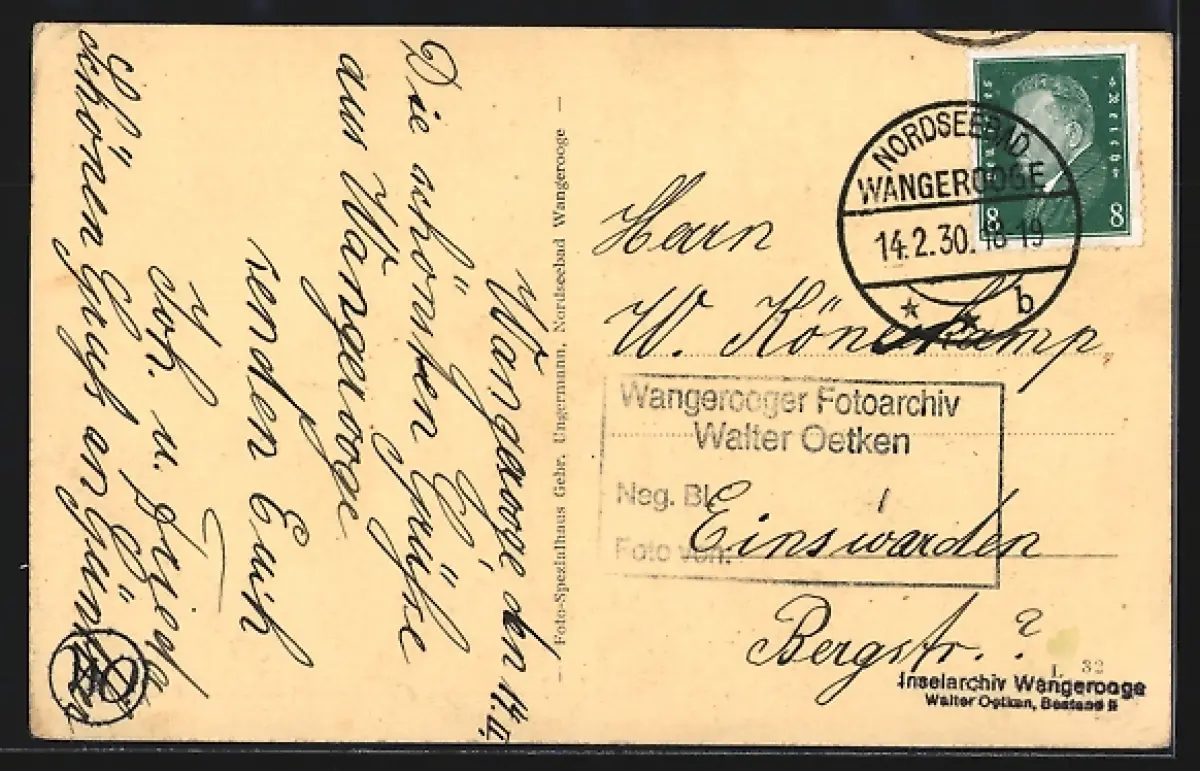 Wangerooge den 14.II.
Die schönsten Grüße
aus Wangerooge
senden Euch
Joh. u. Frieda
schönen Gruß an
Foto-Spezialhaus Gebr. Ungermann, Nordseebad Wangerooge
NORDSEEBAD
WANGEROOGE
14.2.30.18-19
b
Deutsches Reich
8 8
Herrn
W. Könekamp
Wangerooger Fotoarchiv
Walter Oetken
Neg. Bl. /
Foto von:
Einswarden
Bergstr. ?
L 32
Inselarchiv Wangerooge
Walter Oetken, Bestand